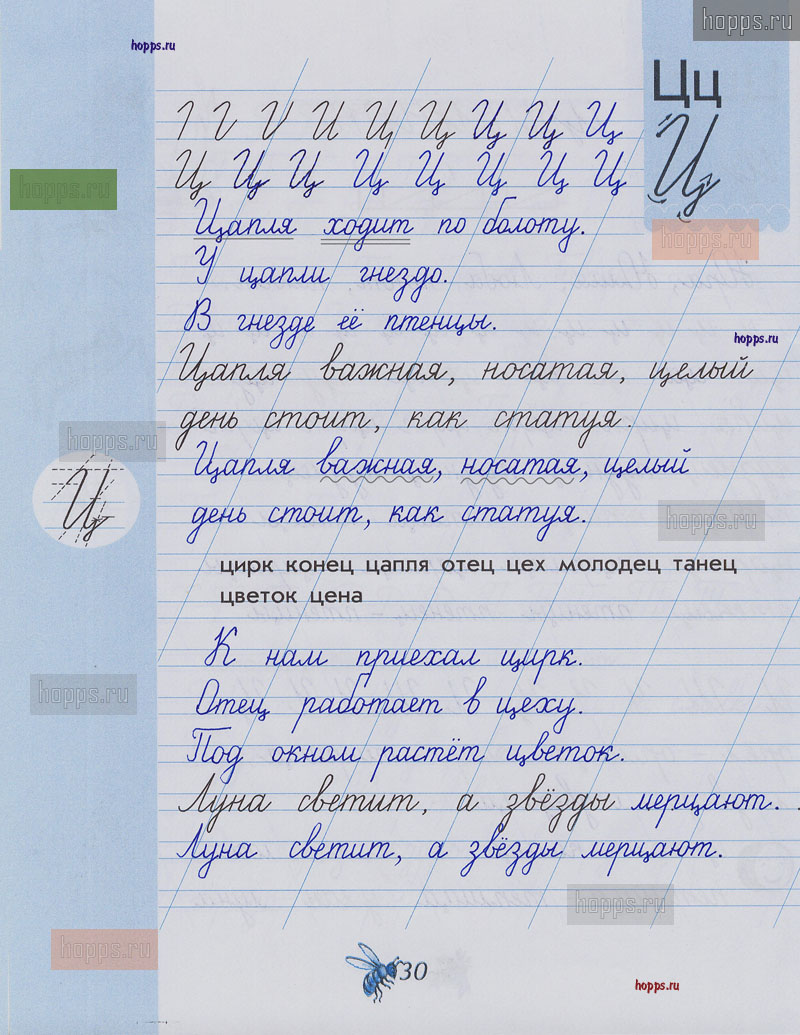 hopps.ru
hopps.ru
Цц
Ц
І И И И Ц Ц Ц Ц Ц
Ц Ц Ц Ц Ц Ц Ц Ц
hopps.ru
Цапля ходит по болоту.
hopps.ru
У цапли гнездо.
В гнезде её птенцы.
hopps.ru
Цапля важная, носатая, целый
день стоит, как статуя.
hopps.ru
Цапля важная, носатая, целый
Ц
день стоит, как статуя.
hopps.ru
цирк конец цапля отец цех молодец танец
цветок цена
К нам приехал цирк.
hopps.ru
Отец работает в цеху.
Под окном растёт цветок.
Луна светит, а звёзды мерцают.
Луна светит, а звёзды мерцают.
hopps.ru
hopps.ru
30
hopps.ru